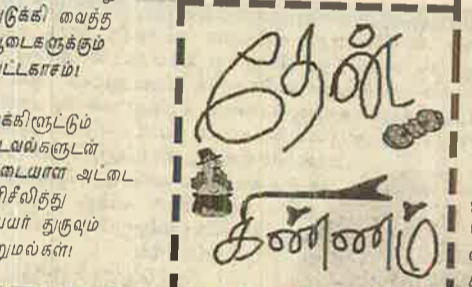 டுக்கி வைத்த
டைகளுக்கும்
ட்டகாசம்!
க்கிளூட்டும்
டவல்களுடன்
டையான அட்டை
ரிசீலித்து
யர் துருவும்
றுமல்கள்!
தேன்
கிண்ணம்